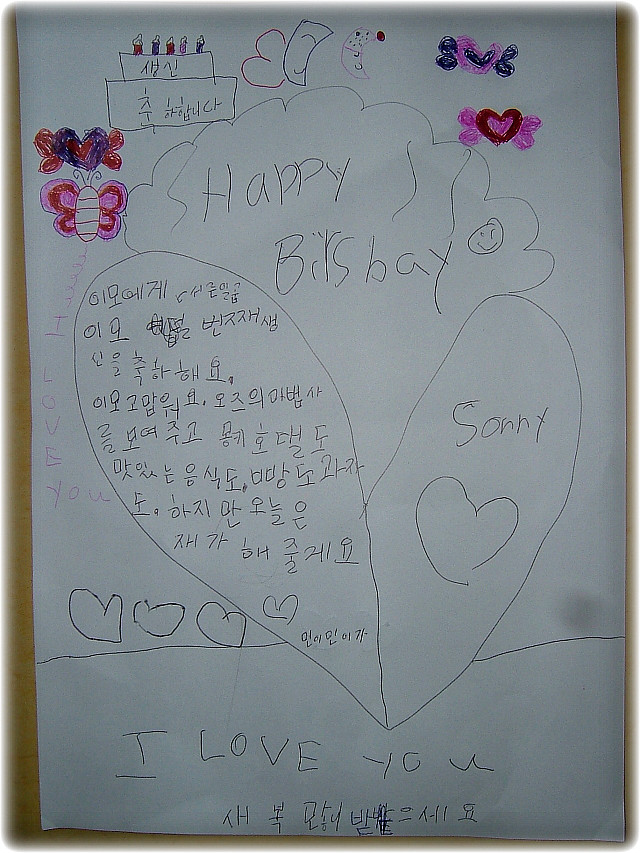 생신
축하합니다
Happy
Birsbay
이모에게 서른일곱
이모 번째생
신을 축하해요.
이모고맙워요. 오즈의마법사
를 보여주고 몽키호텔도
맛있는 음식도, 빵도과자
도. 하지만 오늘은
재가 해줄게요
민이민이가
Sonny
I LOVE you
I LOVE you
새 복 많이 받으세요